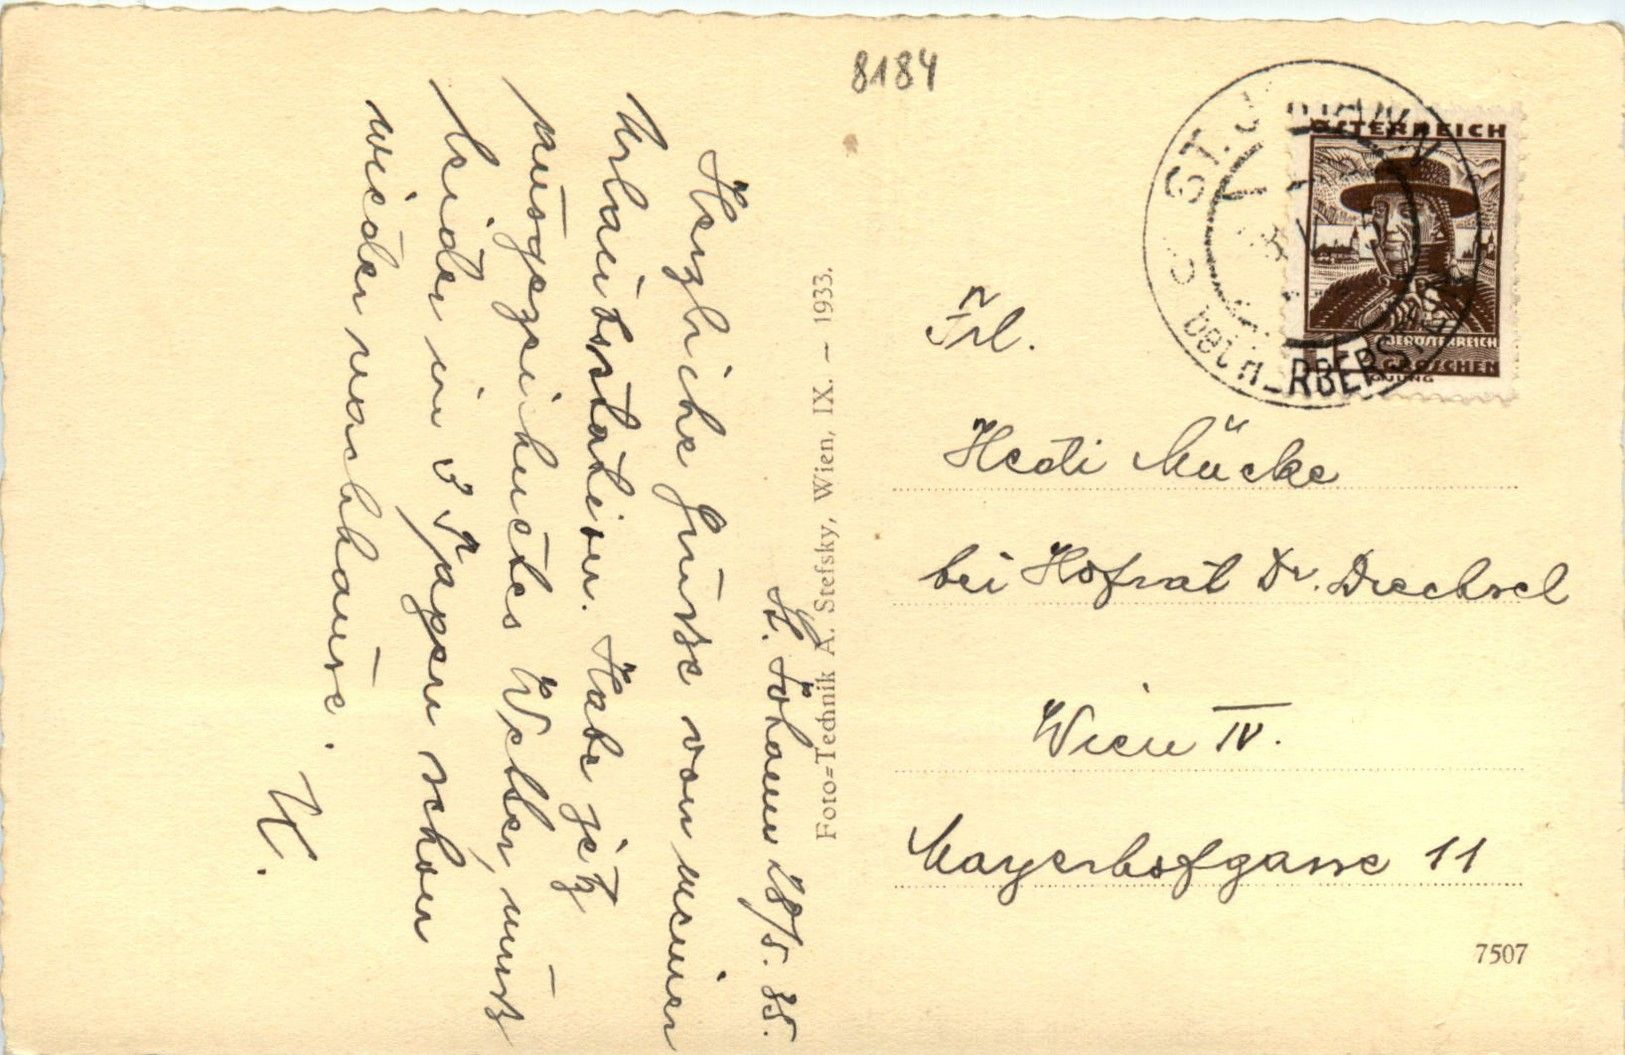 8184
St. Johann 28/5. 35.
Herzliche Grüsse von meiner
Urlaubsstation. Habe jetzt
ausgezeichnetes Wetter, muss
leider in 3 Tagen schon
wieder nachhause.
K.
Foto=Technik A. Stefsky, Wien, IX. – 1933.
ST. JOHANN
bei HERBERST
ÖSTERREICH
OBERÖSTERREICH
GROSCHEN
Frl.
Hedi Mücke
bei Hofrat Dr. Drechsel
Wien IV.
Mayerhofgasse 11
7507